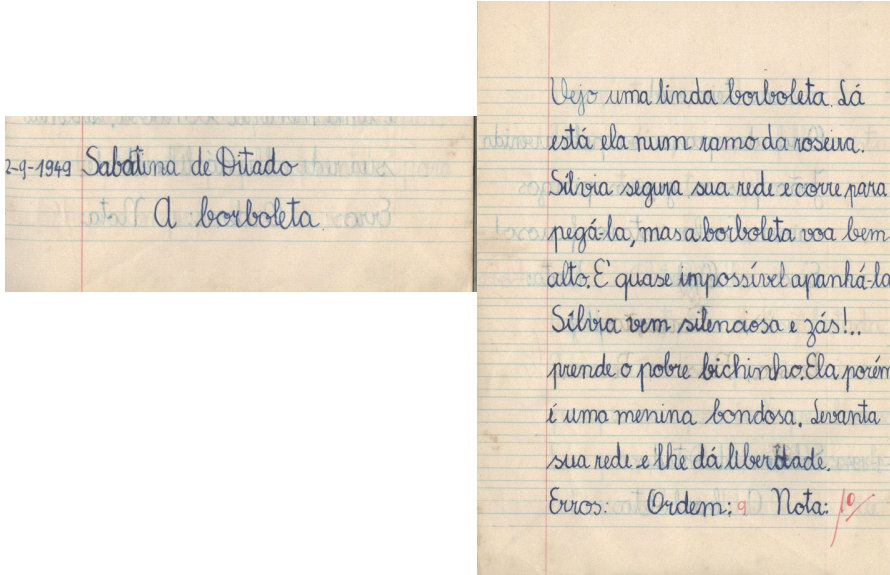 2-9-1949 Sabatina de Ditado
A borboleta
Vejo uma linda borboleta. Lá
está ela num ramo da roseira.
Sílvia segura sua rede e corre para
pegá-la, mas a borboleta voa bem
alto. É quase impossível apanhá-la
Sílvia vem silenciosa e zás!..
prende o pobre bichinho. Ela porém
é uma menina bondosa. Levanta
sua rede e lhe dá liberdade.
Erros: Ordem: 9 Nota: 10